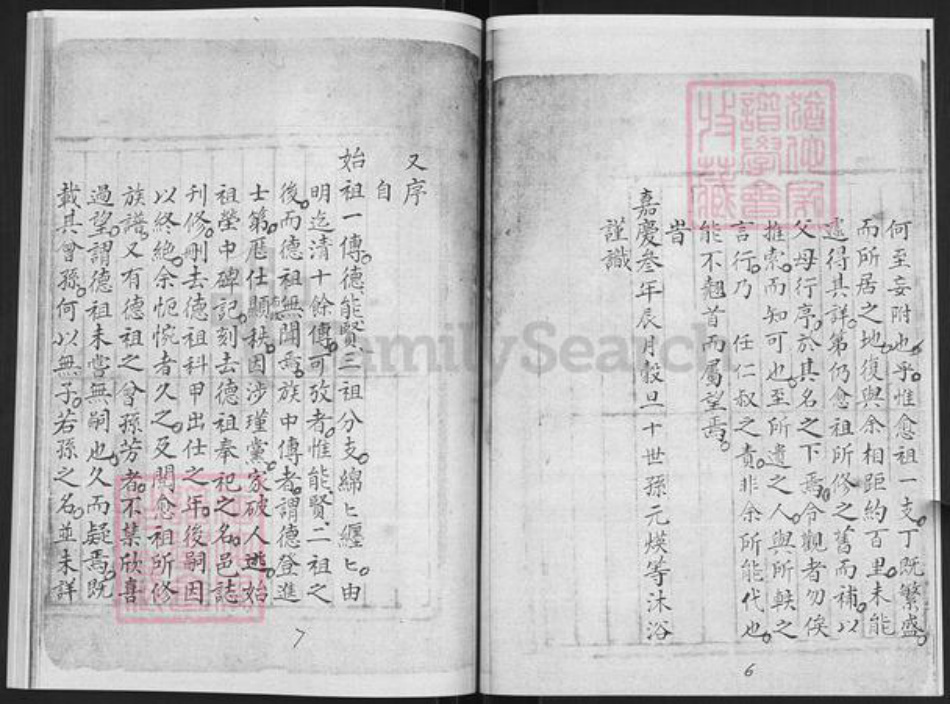 何至妄附也乎惟愈祖一支丁既繁盛
而所居之地復與余相距約百里未能
遽得其詳第仍愈祖所修之舊而補以
父母行序於其名之下焉令觀者勿俟
推索而知可也至所遺之人與所軼之
言行乃 任仁叔之責非余所能代也
能不翹首而屬望焉
旹
嘉慶叁年辰月穀旦十世孫元煐等沐浴
謹識
6
又序
自
始祖一傳德能賢三祖分支綿匕纏匕由
明迄清十餘傳可攷者惟能賢二祖之
後而德祖無聞焉族中傳者謂德登進
士第歷仕顯秩因涉瑾黨家破人逃始
祖塋中碑記刻去德祖奉祀之名邑誌
刊修刪去德祖科甲出仕之年後嗣因
以終絶余怉惋者久之及閱愈祖所修
族譜又有德祖之曾孫芳者不禁欣喜
過望謂德祖未嘗無嗣也久而疑焉既
載其曾孫何以無子若孫之名並未詳
7
FamilySearch